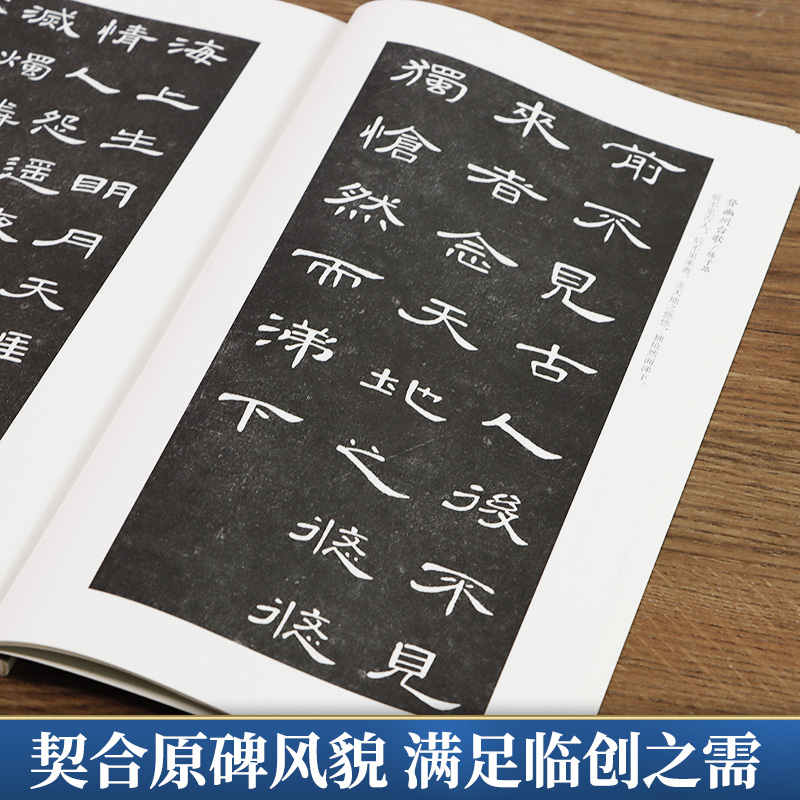 海上生明月天涯
情人怨遥夜
滅燭
登幽州台歌/陈子昂
前不见古人,后不见来者。念天地之悠悠,独怆然而涕下。
前不見古人後不見
來者念天地之悠悠
獨愴然而涕下
契合原碑风貌 满足临创之需